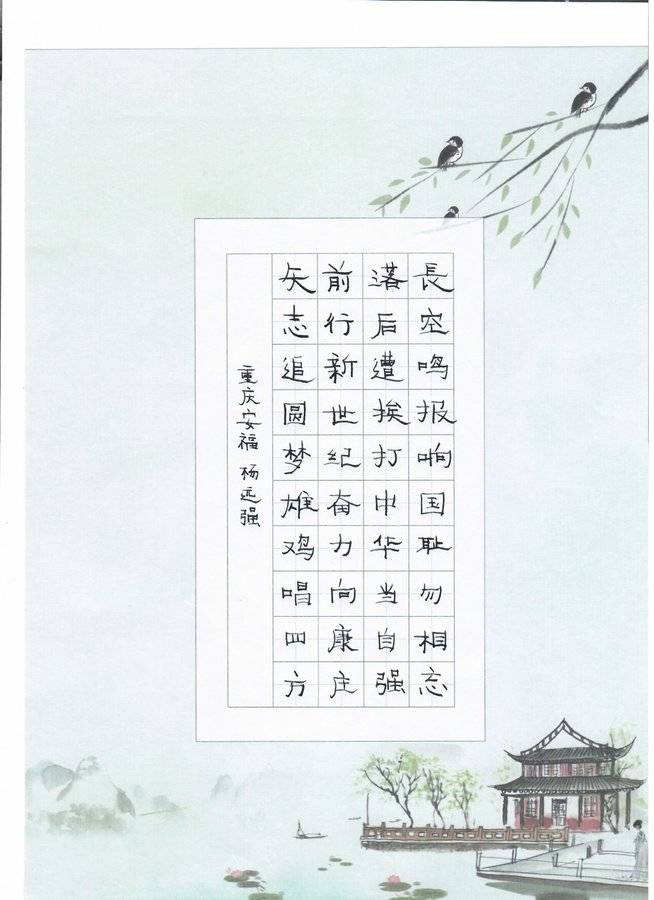 長空鸣报响国耻勿相忘
落后遭挨打中华当自强
前行新世纪奋力向康庄
矢志追圆梦雄鸡唱四方
重庆安福 杨远强